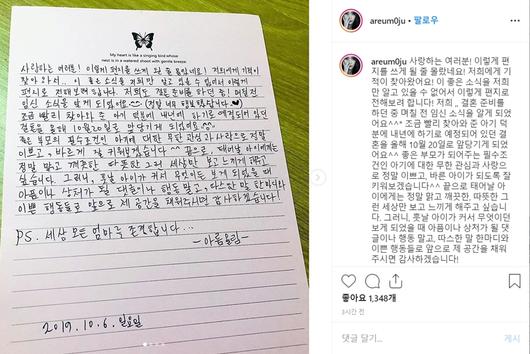 My heart is like a singing bird whose
nest is in a watered shoot with gentle breeze
사랑하는 여러분! 이렇게 편지를 쓰게 될 줄 몰랐네요! 저희에게 기적이
찾아와서.. 이 좋은 소식을 저희만 알고 있을 수 없어서 이렇게
편지로 전해보려 합니다! 저희도 결혼 준비를 하던 중! 며칠전
임신 소식을 알게 되었어요
조금 빨리 찾아와 준 아기 덕분에 내년에 하기로 예정되어 있던
결혼을 올해 10월 20일로 앞당기게 되었어요!
좋은 부모의 필수조건인 아기에 대한 무한 관심과 사랑으로 정말
이쁘고, 바른 아이가 되도록 잘 키워보겠습니다^^ 끝으로, 태어날 아이에게는
정말 맑고 깨끗한 따뜻한 그런 세상만 보고 느끼게 해주고
싶습니다. 그러니, 훗날 아이가 커서 무엇이던 보게 되었을 때
아픔이나 상처가 될 댓글이나 행동 말고, 따스한 말 한마디와
이쁜 행동들로 앞으로 제 공간을 채워주시면 감사하겠습니다!
PS. 세상 모든 엄마를 존경합니다...
-아름올림-
2019. 10. 6. 일요일
areum0ju • 팔로우
areum0ju 사랑하는 여러분! 이렇게 편
지를 쓰게 될 줄 몰랐네요! 저희에게 기
적이 찾아왔어요! 이 좋은 소식을 저희
만 알고 있을 수 없어서 이렇게 편지로
전해보려 합니다! 저희.. 결혼 준비를
하던 중 며칠 전 임신 소식을 알게 되었
어요^^ 조금 빨리 찾아와 준 아기 덕
분에 내년에 하기로 예정되어 있던 결
혼을 올해 10월 20일로 앞당기게 되었
어요^^ 좋은 부모가 되어주는 필수조
건인 아기에 대한 무한 관심과 사랑으
로 정말 이쁘고, 바른 아이가 되도록 잘
키워보겠습니다^^ 끝으로 태어날 아
이에게는 정말 맑고 깨끗한, 따뜻한 그
런 세상만 보고 느끼게 해주고 싶습니
다. 그러니, 훗날 아이가 커서 무엇이던
보게 되었을 때 아픔이나 상처가 될 댓
글이나 행동 말고, 따스한 말 한마디와
이쁜 행동들로 앞으로 제 공간을 채워
주시면 감사하겠습니다!
좋아요 1,348개
3시간 전
댓글 달기...
게시